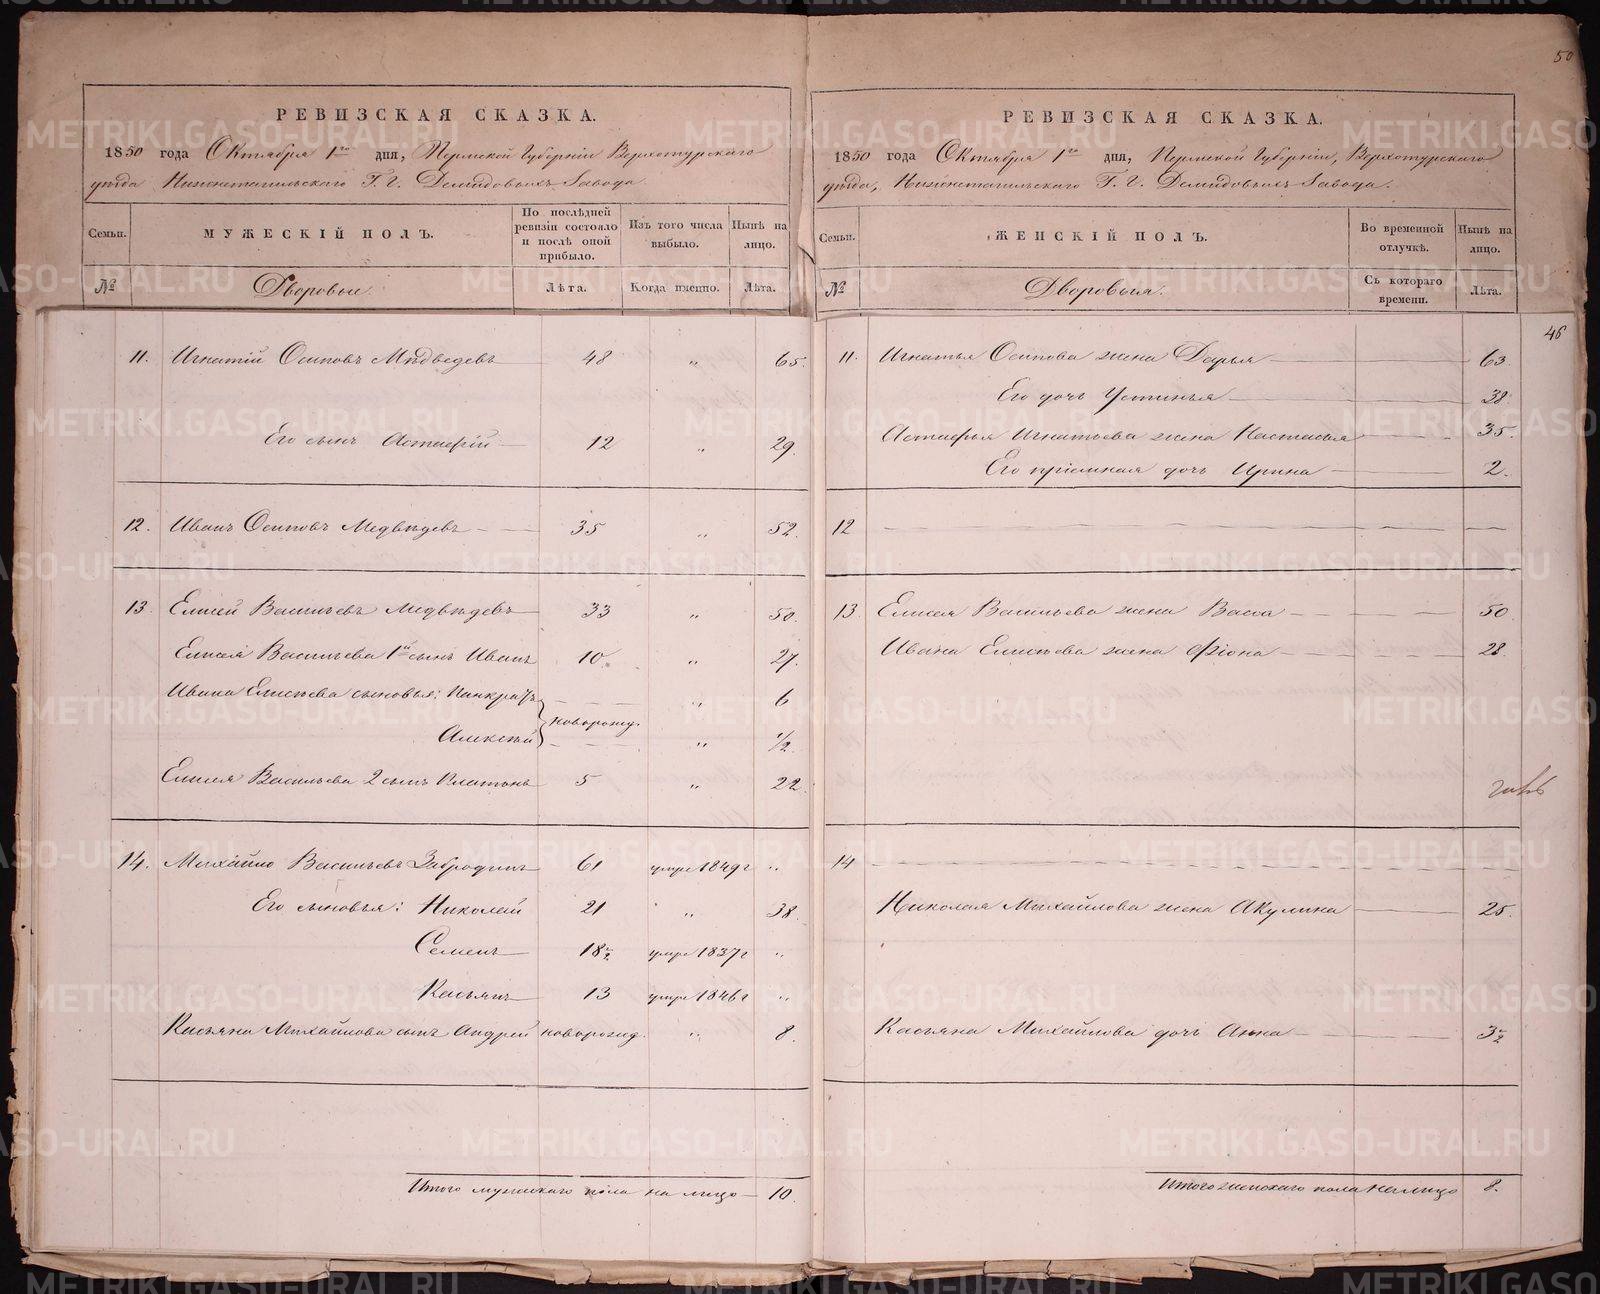 50
РЕВИЗСКАЯ СКАЗКА.
1850 года Октября 1го дня, Пермской Губерніи Верхотурскаго
уѣзда Нижнетагильскаго Г. Г. Демидовыхъ Завода.
Семьи. МУЖЕСКІЙ ПОЛЪ. По послѣдней ревизіи состояло и послѣ оной прибыло. Изъ того числа выбыло. Нынѣ на лицо.
№ Дворовыи. Лѣта. Когда именно. Лѣта.
11. Игнатій Осиповъ Мѣдведевъ 48 " 65.
Его сынъ Астафій 12 " 29.
12. Иванъ Осиповъ Медвѣдевъ 35 " 52.
13. Елисей Васильевъ Медвѣдевъ 33 " 50.
Елисея Васильева 1й сынъ Иванъ 10. " 27.
Ивана Елисѣева сыновья: Панкратъ " 6
новорожд.
Алексѣй " 1/2.
Елисея Васильева 2 сынъ Платонъ 5 " 22.
14. Михайло Васильевъ Забродинъ 61 умре 1849г "
Его сыновья: Николай 21 " 38.
Семенъ 18½ умре 1837г "
Касьянъ 13 умре 1846г "
Касьяна Михайлова сынъ Андрей новорожд. " 8.
Итого мужескаго пола на лицо — 10.
РЕВИЗСКАЯ СКАЗКА.
1850 года Октября 1го дня, Пермской Губерніи, Верхотурскаго
уѣзда, Нижнетагильскаго Г. Г. Демидовыхъ Завода.
Семьи. ЖЕНСКІЙ ПОЛЪ. Во временной отлучкѣ. Нынѣ на лицо.
№ Дворовыя. Съ котораго времени. Лѣта.
46
11. Игнатья Осипова жена Дарья 63.
Его дочь Устинья 38.
Астафья Игнатьева жена Настасья 35.
Его пріемная дочь Ирина 2.
12 — — —
13 Елисея Васильева жена Васса 50.
Ивана Елисѣева жена Фіона 28.
14 — — —
Николая Михайлова жена Акулина 25.
Касьяна Михайлова дочь Анна 3½
Итого женскаго пола на лицо 8.
METRIKI.GASO-URAL.RU